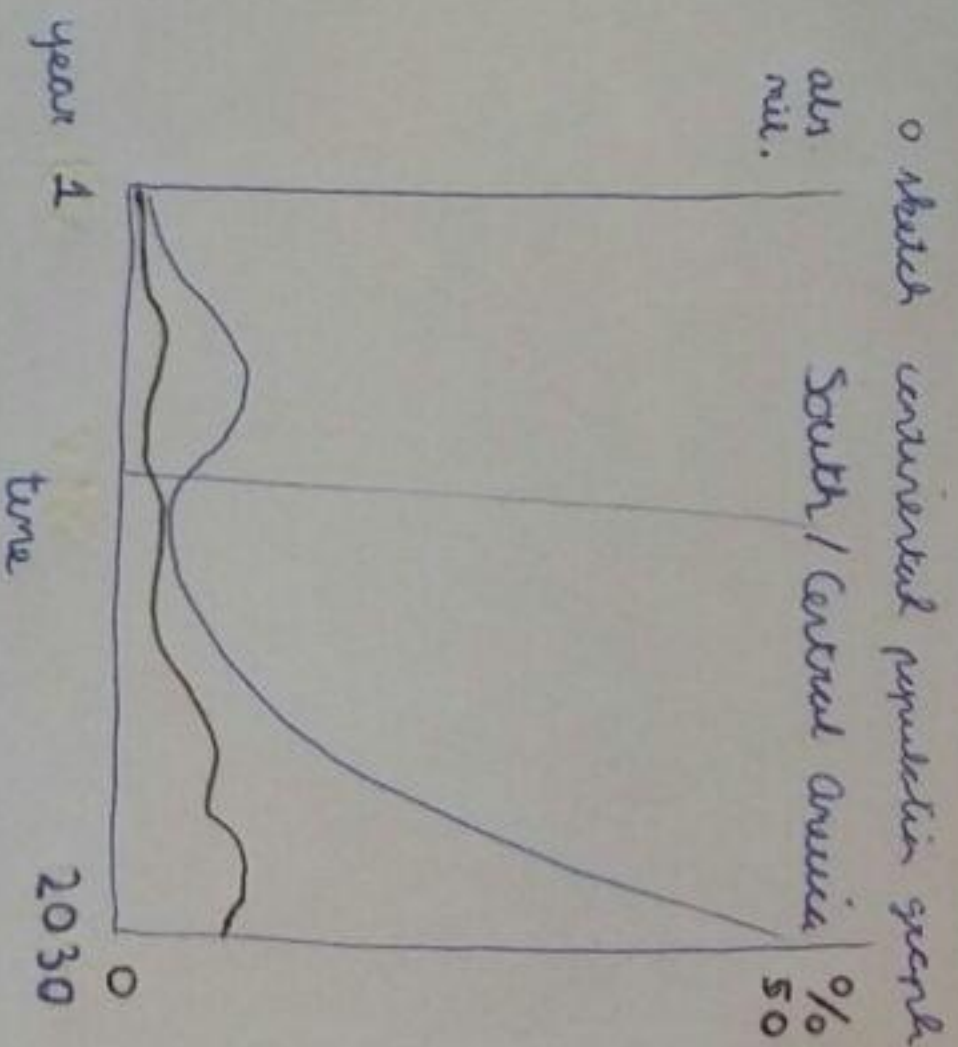 o sketch continental population graph
South/Central America
abs
mil.
%
50
0
year 1
time
2030